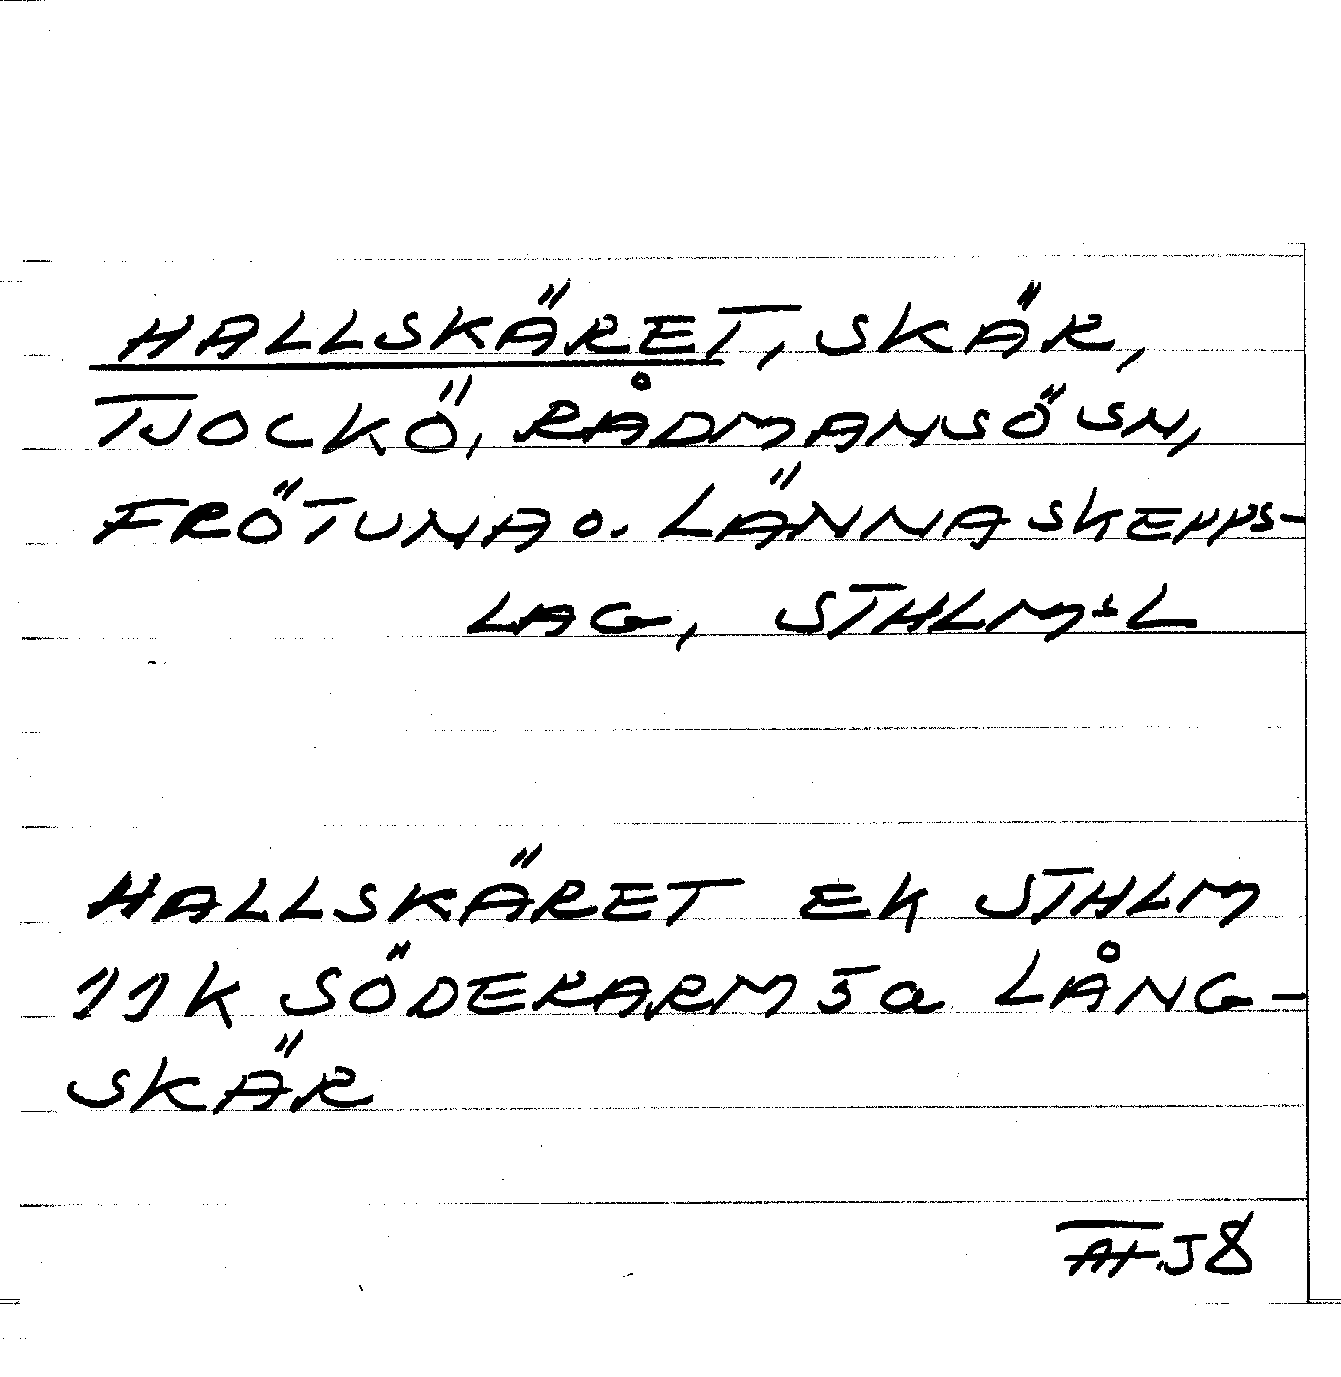 HALLSKÄRET, SKÄR,
TJOCKÖ, RÅDMANSÖ SN,
FRÖTUNA o. LÄNNA SKEPPS-
LAG, STHLMS L
HALLSKÄRET EK STHLM
11K SÖDERARM 5a LÅNG-
SKÄR